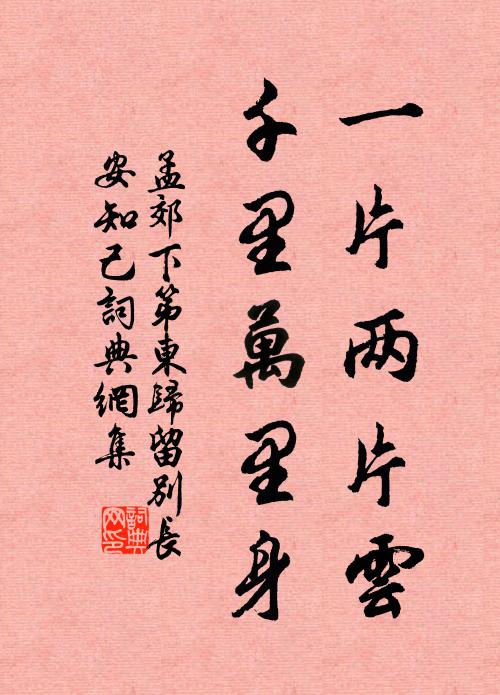 一片两片雲
千里萬里身
孟郊下第東歸留別長
安知己詞典網集
詞典网印